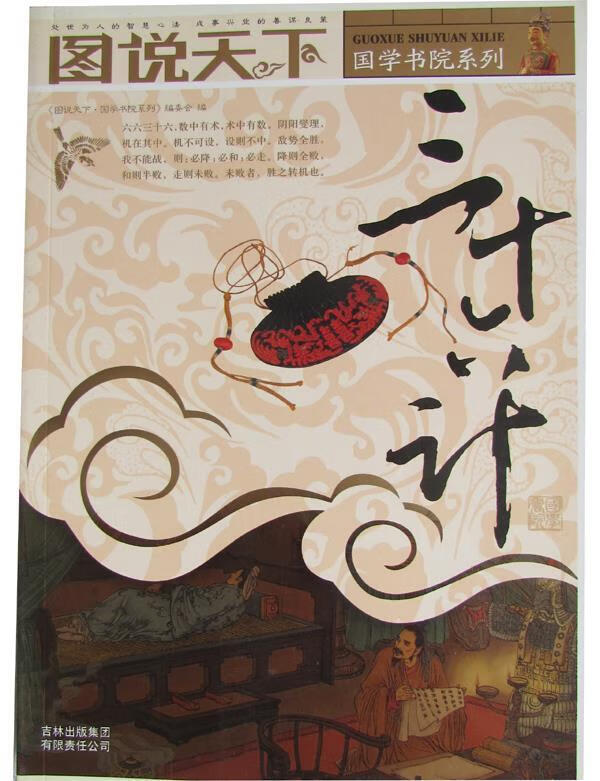 处世为人的智慧心法 成事兴业的善谋良策
图说天下
GUOXUE SHUYUAN XILIE
国学书院系列
《图说天下·国学书院系列》编委会 编
六六三十六,数中有术,术中有数。阴阳燮理,
机在其中。机不可设,设则不中。敌势全胜,
我不能战,则:必降;必和;必走。降则全败,
和则半败,走则未败。未败者,胜之转机也。
三十六计
吉林出版集团
有限责任公司